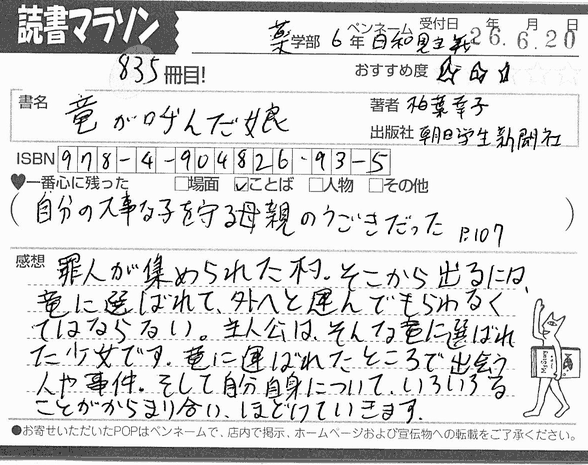 読書マラソン
薬学部 6年 ペンネーム 日和見主義 受付日 26年.6月.20日
835冊目! おすすめ度 ☆☆☆
書名 竜が呼んだ娘 著者 柏葉幸子
出版社 朝日学生新聞社
ISBN 978-4-904826-93-5
♥一番心に残った □場面 ☑ことば □人物 □その他
(自分の大事な子を守る母親のうごきだった P.107)
感想 罪人が集められた村。そこから出るには、
竜に選ばれて、外へと運んでもらわなく
てはならない。主人公は、そんな竜に選ばれ
た少女です。竜に運ばれたところで出会う
人や事件。そして自分自身について、いろいろな
ことがからまり合い、ほどけていきます。
●お寄せいただいたPOPはペンネームで、店内で掲示、ホームページおよび宣伝物への転載をご了承ください。